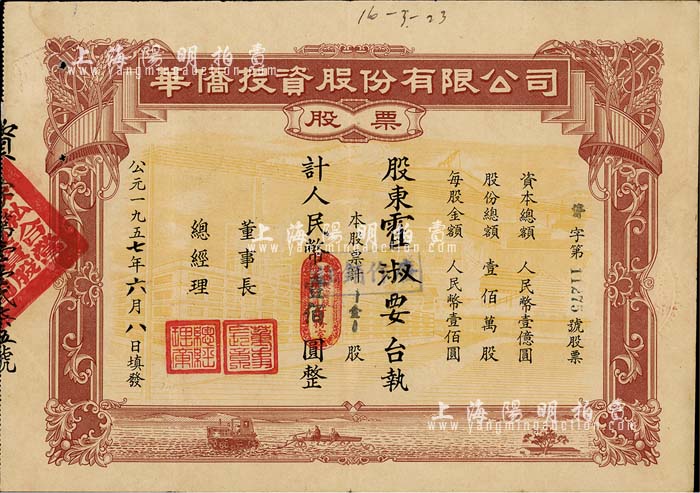 16-3-23
上海陽明拍賣
www.yangmingauction.com
華僑投資股份有限公司
股票
字第11275號股票
資本總額 人民幣壹億圓
股份總額 壹佰萬股
每股金額 人民幣壹佰圓
股東霍淑要台執
本股票計 壹 股
計人民幣壹佰圓整
董事長
總經理
公元一九五七年六月八日填發
上海陽明拍賣
www.yangmingauction.com
上海陽明拍賣
www.yangmingauction.com